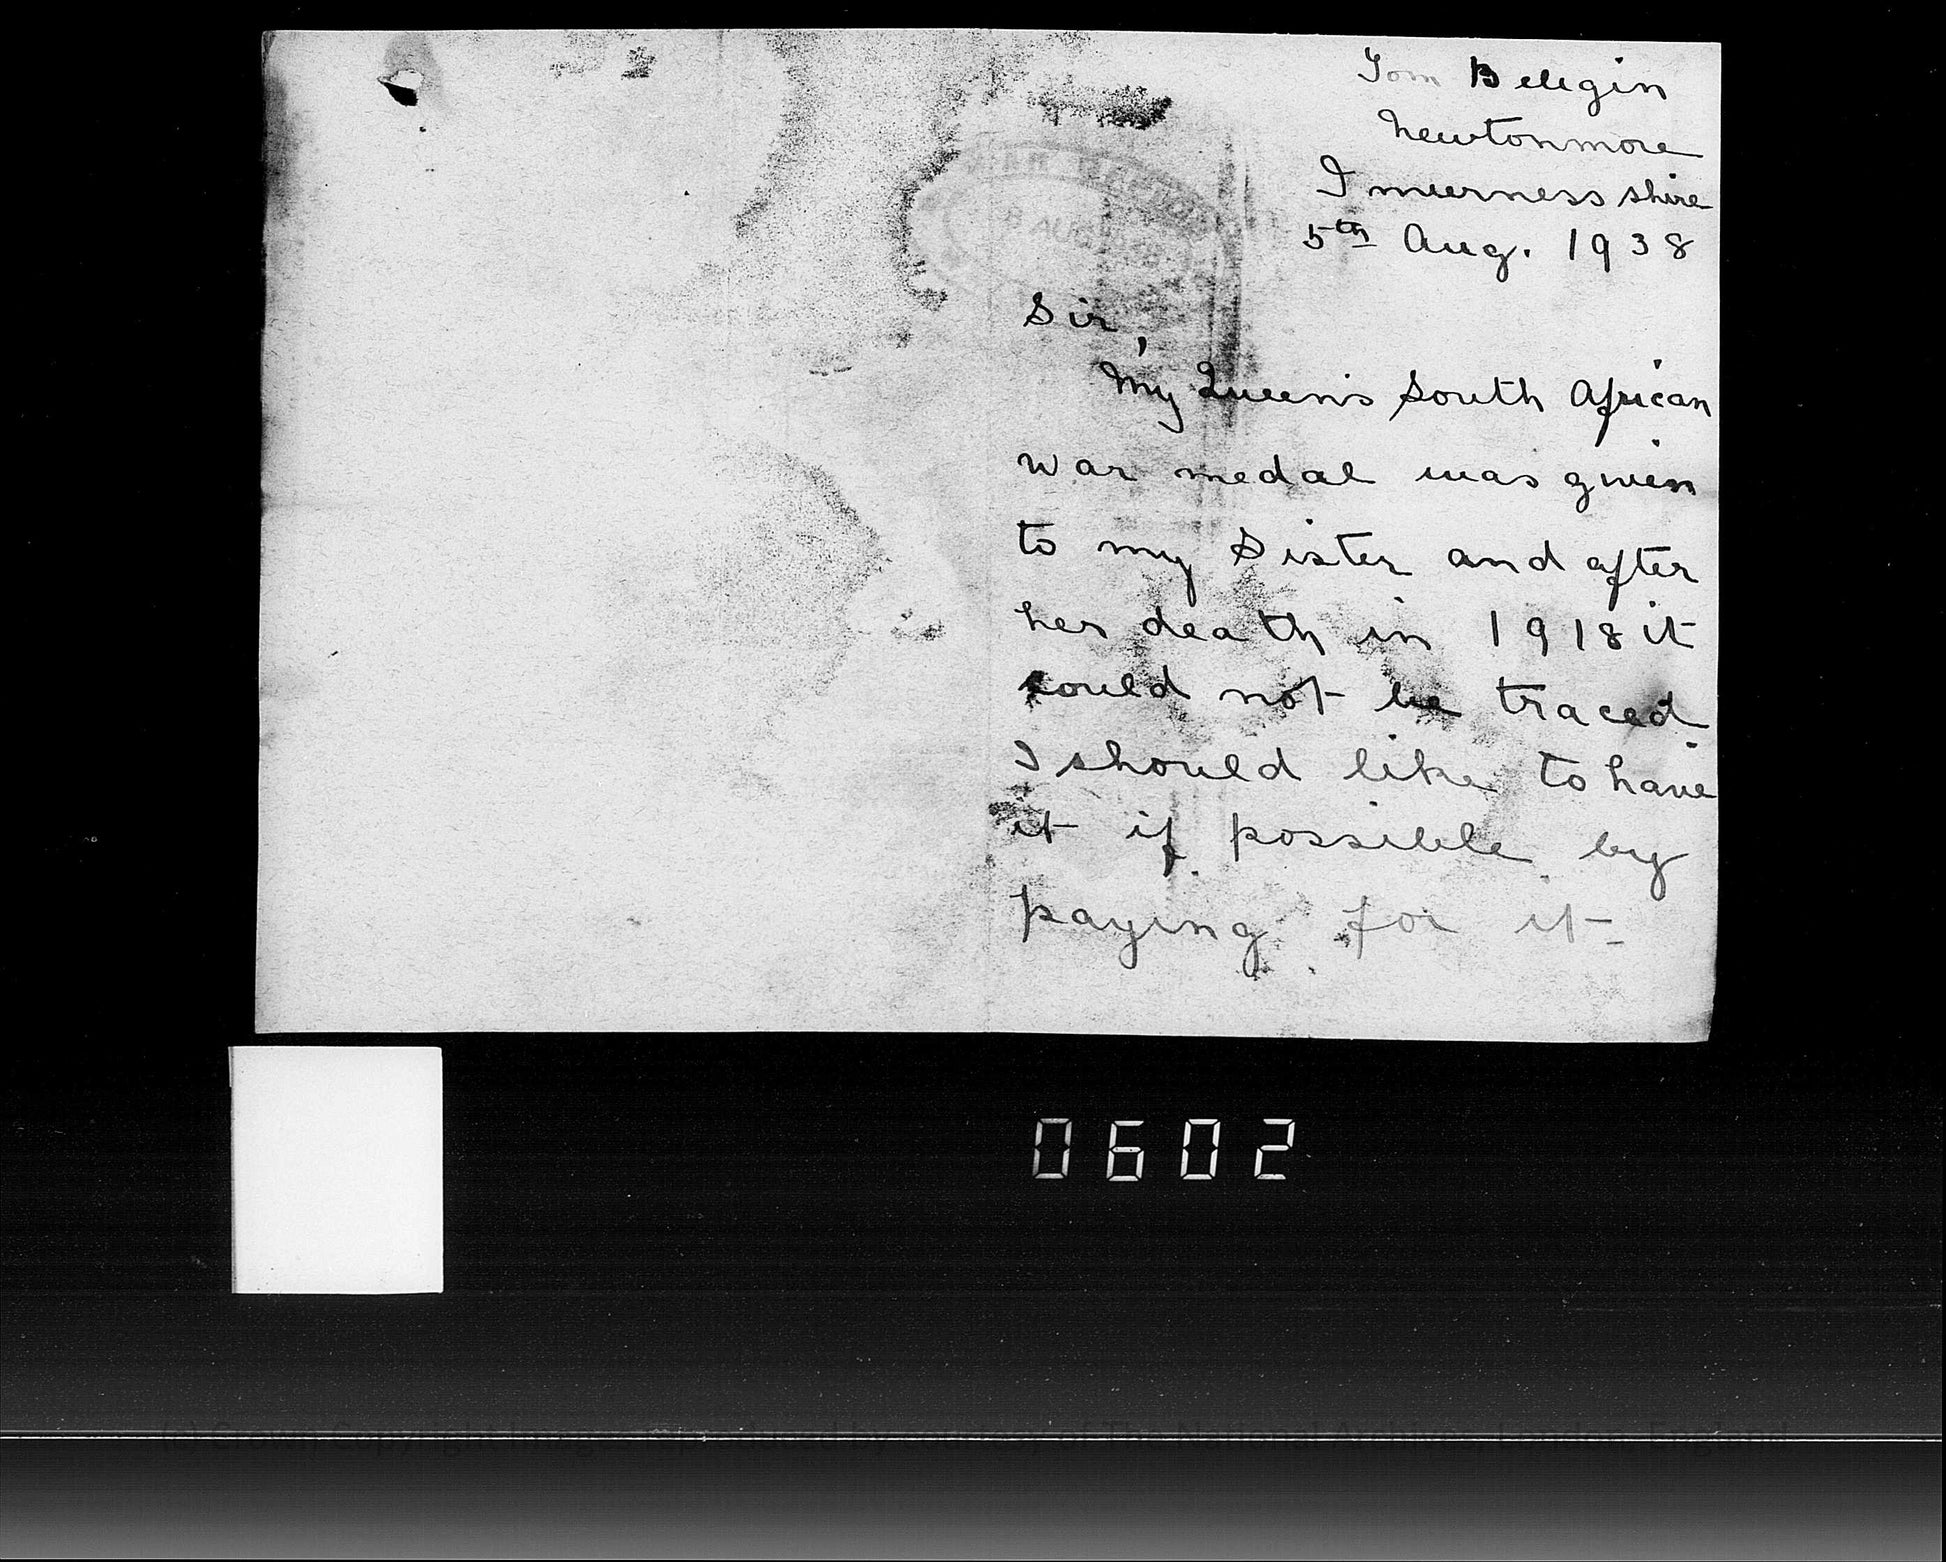 Tom Beligin
Newtonmore
Inverness shire
5th Aug. 1938
Sir,
My Queen's South African
war medal was given
to my Sister and after
her death in 1918 it
could not be traced.
I should like to have
it if possible by
paying for it.
0602
(c) Crown Copyright Images reproduced by courtesy of The National Archives, London, England.